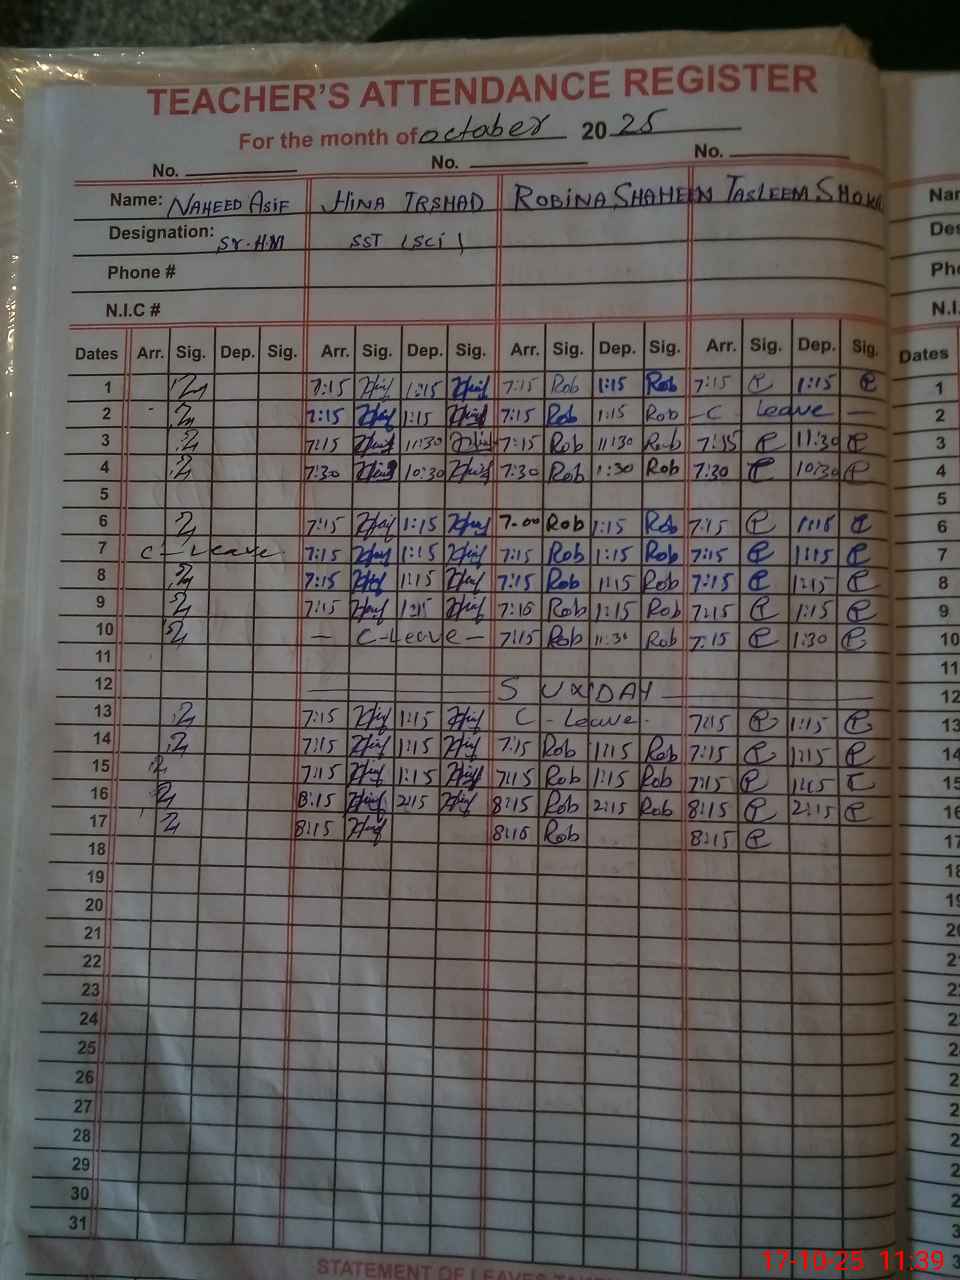 TEACHER'S ATTENDANCE REGISTER
For the month of october 2025
No. No. No.
Name: NAHEED ASIF HINA IRSHAD ROBINA SHAHEEN TASLEEM
Designation: Sr.H.M SST (Sci)
Phone #
N.I.C #
Dates Arr. Sig. Dep. Sig. Arr. Sig. Dep. Sig. Arr. Sig. Dep. Sig. Arr. Sig. Dep. Sig. Dates
1 7:15 1:15 7:15 Rob 1:15 Rob 7:15 1:15 1
2 7:15 1:15 7:15 Rob 1:15 Rob – C Leave – 2
3 7:15 11:30 7:15 Rob 11:30 Rob 7:15 11:30 3
4 7:30 10:30 7:30 Rob 1:30 Rob 7:30 10:30 4
5 5
6 7:15 1:15 7-00 Rob 1:15 Rob 7:15 1:15 6
7 C-Leave 7:15 1:15 7:15 Rob 1:15 Rob 7:15 1:15 7
8 7:15 1:15 7:15 Rob 1:15 Rob 7:15 1:15 8
9 7:15 1:15 7:15 Rob 1:15 Rob 7:15 1:15 9
10 – C-Leave – 7:15 Rob 11:30 Rob 7:15 1:30 10
11 11
12 SUNDAY 12
13 7:15 1:15 C-Leave. 7:15 1:15 13
14 7:15 1:15 7:15 Rob 1:15 Rob 7:15 1:15 14
15 7:15 1:15 7:15 Rob 1:15 Rob 7:15 1:15 15
16 8:15 2:15 8:15 Rob 2:15 Rob 8:15 2:15 16
17 8:15 8:15 Rob 8:15 17
18
19
20
21
22
23
24
25
26
27
28
29
30
31
STATEMENT OF LEAVES
17-10-25 11:39